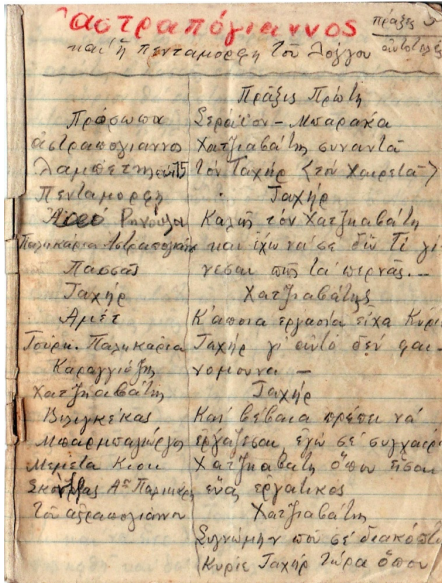 αστραπόγιαννος
πράξις 3
και ή πενταμορφη του Λόγγου αυτοτελές
Πρόσωπα
αστραπογιαννο
Λαμπέτης
Πενταμορφη
Ρηνούλα
Παλικάρια Αστραπογιάννου
Πασσάς
Ταχήρ
Αμέτ
Τούρκ. Παληκάρια
Καραγγιόζης
Χατζηαβάτη
Βεληγκέκας
Μπαρμπαγιώργο
Μεμέτα
Αος Παλικάρς
του αστραπογιαννου
Πράξις Πρώτη
Σεράϊον – Μπαράκα
Χατζιαβάτης συναντά
τον Ταχήρ (τον Χαιρετά)
Ταχήρ
Καλώς τόν Χατζηαβάτη
και έχω να σε δώ τί γί-
νεσαι πώς τα περνάς. –
Χατζηαβάτης
Κάποια εργασία είχα Κύριε
Ταχήρ γι αυτό δέν φαι-
νομουνα –
Ταχήρ
Και βέβαια πρέπει νά
εργάζεσαι εγώ σέ συγχαίρω
Χατζηαβάτη όπου ήσαι
ενας εργατικος
Χατζηαβάτη
Συγνώμην πού σέ διακόπτω
Κυριε Ταχήρ τώρα όπου